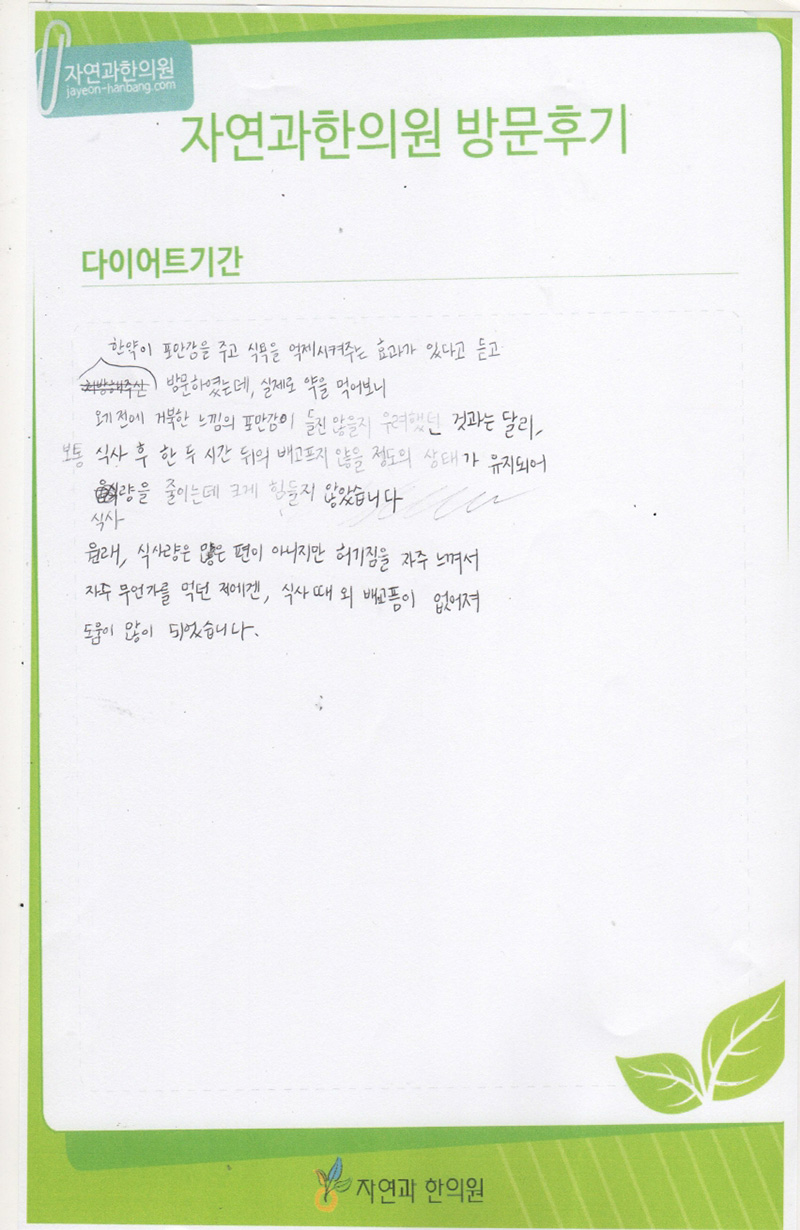 자연과한의원
jayeon-hanbang.com
자연과한의원 방문후기
다이어트기간
한약이 포만감을 주고 식욕을 억제시켜주는 효과가 있다고 듣고
처방해주신 방문하였는데, 실제로 약을 먹어보니
오기 전에 거북한 느낌의 포만감이 들진 않을지 우려했던 것과는 달리,
보통 식사 후 한 두 시간 뒤의 배고프지 않을 정도의 상태가 유지되어
량을 줄이는데 크게 힘들지 않았습니다
식사
원래, 식사량은 많은 편이 아니지만 허기짐을 자주 느껴서
자주 무언가를 먹던 저에겐, 식사 때 외 배고픔이 없어져
도움이 많이 되었습니다.
자연과 한의원